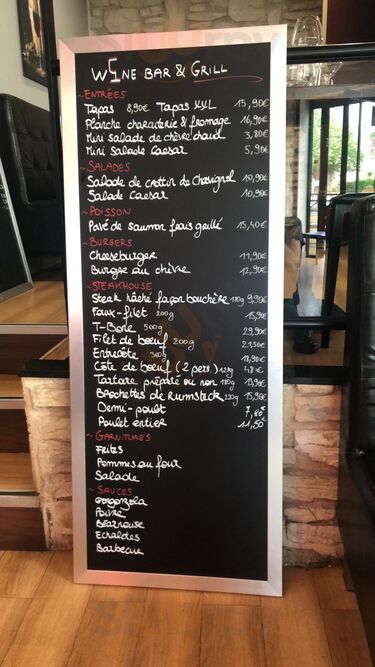 WINE BAR & GRILL
~ ENTRÉES
Tapas 8,90€ Tapas XXL 15,90€
Planche charcuterie & fromage 16,90€
Mini salade de chèvre chaud 3,80€
Mini Salade Caesar 5,90€
~ SALADES
Salade de crottin de Chavignol 10,90€
Salade Caesar 10,90€
~ POISSON
Pavé de saumon frais grillé 15,40€
~ BURGERS
Cheeseburger 11,90€
Burger au chèvre 12,90€
~ STEAKHOUSE
Steak hâché façon bouchère 180g 9,90€
Faux-filet 200g 15,90€
T-Bone 500g 29,90€
Filet de boeuf 200g 21,50€
Entrecôte 300g 18,90€
Côte de boeuf (2 pers.) 1,2kg 48€
Tartare préparé ou non 180g 13,90€
Brochettes de Rumsteck 220g 15,90€
Demi-poulet 7,80€
Poulet entier 11,50€
~ GARNITURES
Frites
Pommes au four
Salade
~ SAUCES
Gorgonzola
Poivre
Béarnaise
Echalotes
Barbecue